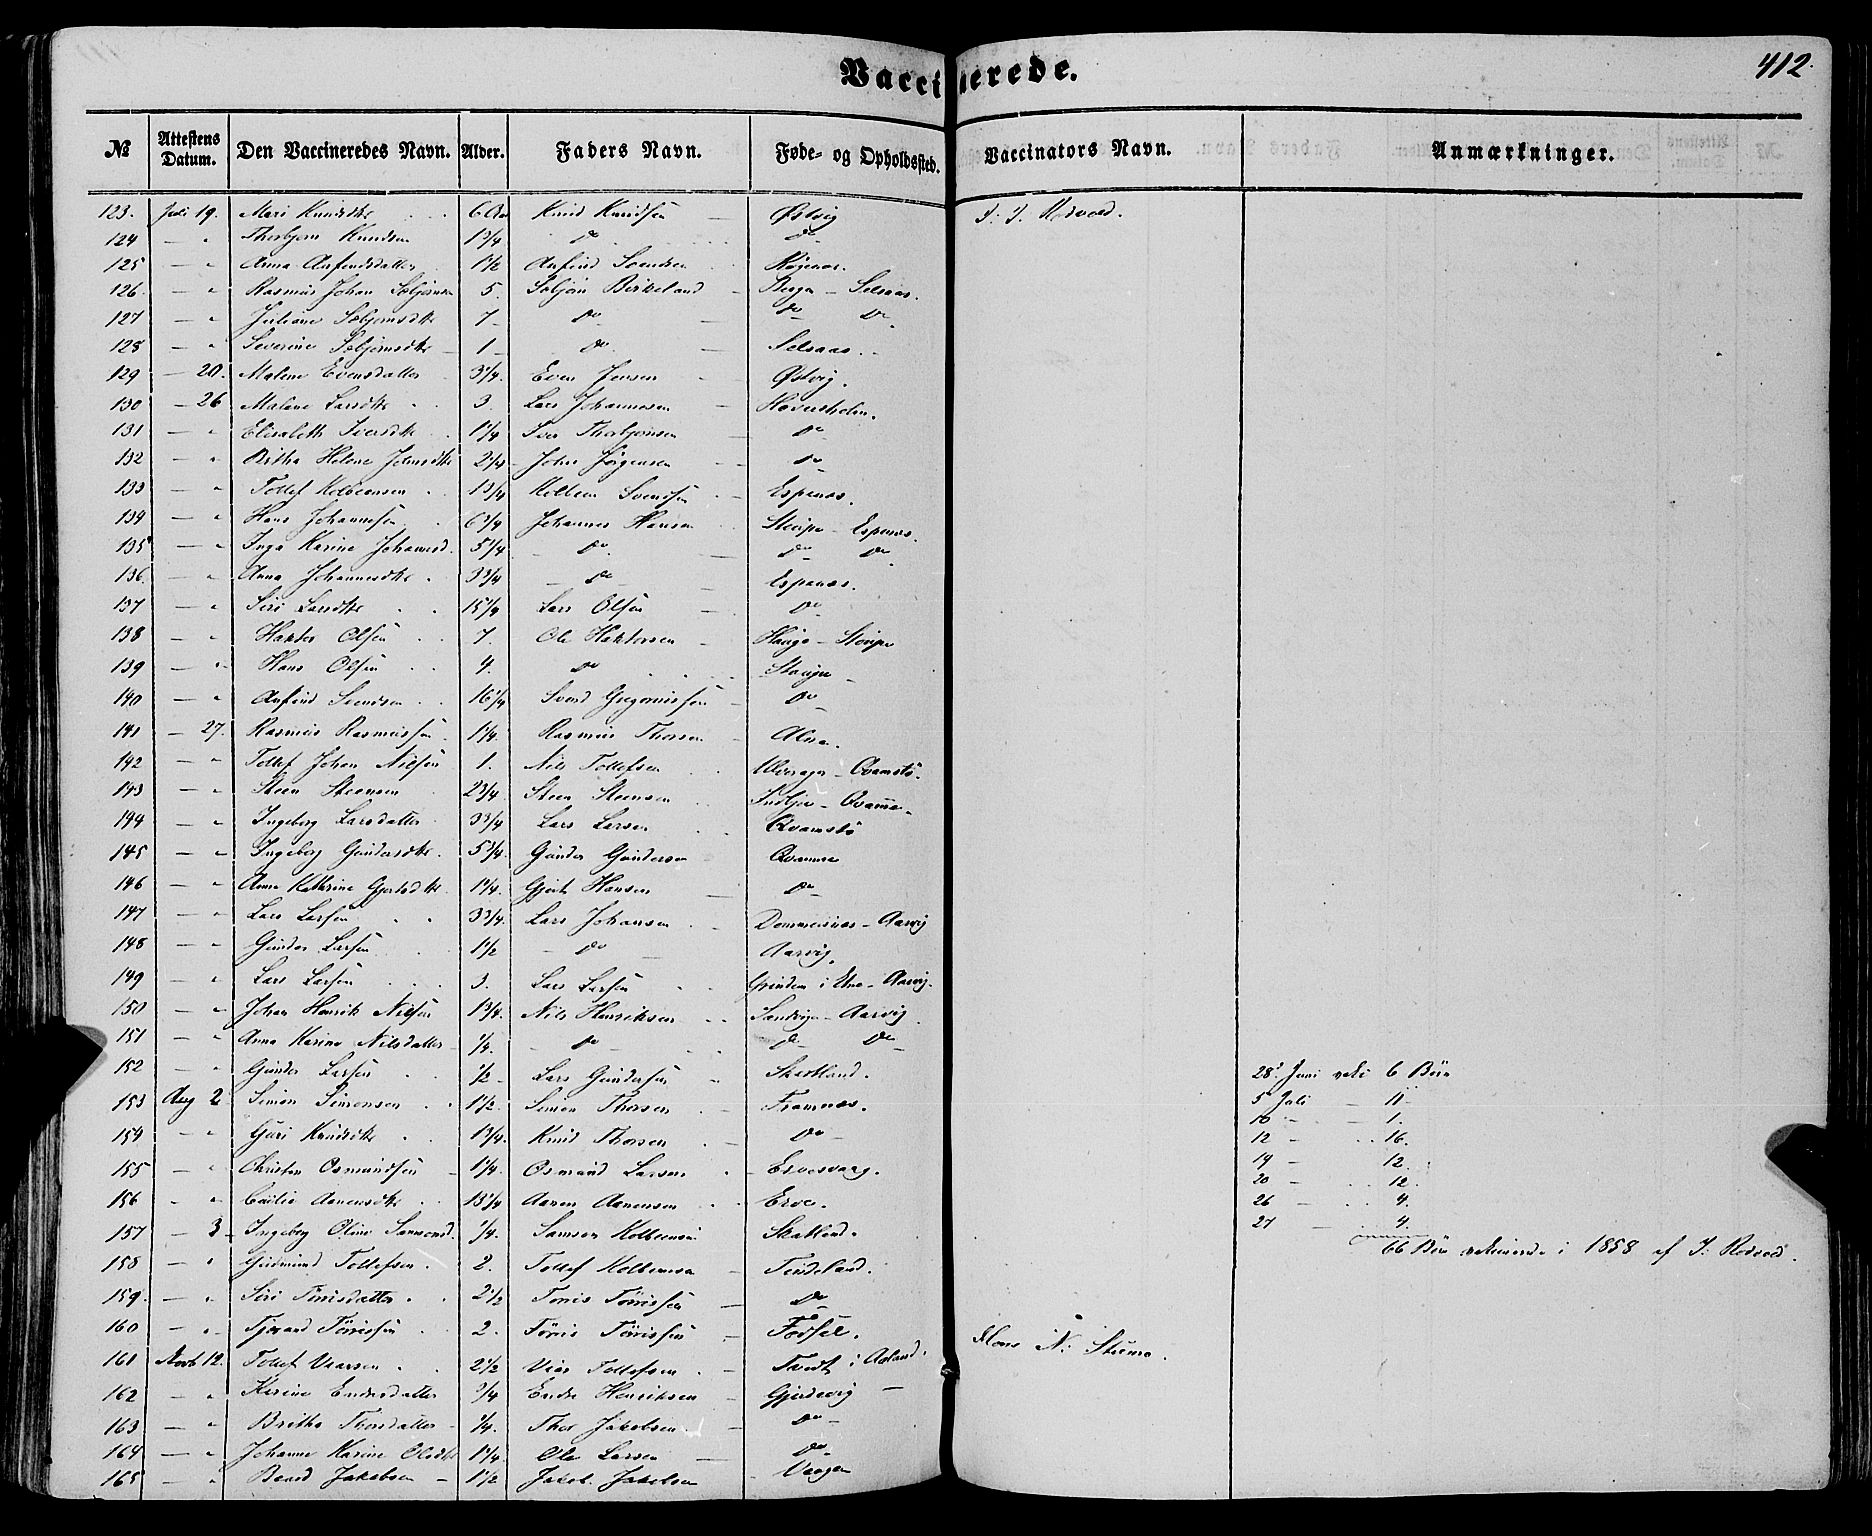 412.
Vaccinerede.
№ Attestens Datum. Den Vaccineredes Navn. Alder. Faders Navn. Føde- og Opholdssted. Vaccinators Navn. Anmærkninger.
123. Juli 19. Mari Knudsdtr 6 Knud Knudsen Østvig
124 — " Thorbjørn Knudsen 1 3/4 Do Do
125 — " Anna Anfindsdatter 1 1/2 Anfind Svendsen
126. — " Rasmus Johan 5. Birkeland Bergen — Selsaas.
127 — " Juliane 7 Do Do Do
128 — " Severine 1 Do Selsaas.
129 — 20. Malene Evensdatter 3 1/4. Even Jensen Østvig.
130 — 26 Malene Larsdtr 3. Lars Johannesen
131 — " Elisabeth Iversdtr 1 1/4 Iver Thorbjørnsen Do
132 — " Britha Helene Johnsdtr 2 1/4 John Jørgensen Do
133 — " Tollef Kolbeensen 1 3/4 Kolbeen Svendsen Espenæs.
134 — " Hans Johannesen 6 3/4 Johannes Hansen Støvige — Espenæs.
135 — " Inga Karine Johannesd. 5 1/4 Do Do Do
136. — " Anna Johannesdtr 3 3/4 Do Espenæs.
137 — " Siri Larsdtr 15 1/4 Lars Olsen Do
138 — " Olsen 7. Ole Hauge —
139 — " Hans Olsen 4. Do
140 — " Anfind Svendsen 16 1/4 Svend Gregoriussen Do
141 — 27. Rasmus Rasmussen 1 1/4. Rasmus Thorsen
142 — " Tollef Johan Nilsen 1. Nils Tollefsen — Qvamstø.
143 — " Steen Steensen 2 3/4. Steen Steensen — Qvamme.
144 — " Ingeborg Larsdatter 3 3/4 Lars Larsen Qvamstø
145 — " Ingeborg Gundersdtr. 5 3/4. Gunder Gundersen Qvamme
146 — " Anna Kathrine Gjertsdtr 1 1/4. Gjert Hansen Do
147 — " Lars Larsen 3 3/4. Lars Johansen Dommersnæs — Aarvig
148 — " Gunder Larsen 1 1/2 Do Aarvig.
149 — " Lars Larsen 3. Lars Larsen Grinden i Etne — Aarvig.
150 — " Johan Henrik Nilsen 1 3/4. Nils Henriksen Sandvigen — Aarvig
151 — " Anna Karine Nilsdatter 1/4. Do Do Do
152 — " Gunder Larsen 1/2 Lars Gundersen Skartland.
153 Aug 2 Simon Simonsen 1 1/2. Simon Thorsen Framnæs.
154 — " Guri Knudsdtr 1 3/4. Knud Thorsen Do
155 — " Christen Osmundsen 1 1/4. Osmund Larsen Ervesvaag.
156 — " Cecilie Aanensdtr 13 1/4 Aanen Aanensen Erve.
157 — 3 Ingeborg Oline Samsonsd. 1/4 Samson Kolbeensen Skatland.
158 — " Gudmund Tollefsen. 2. Tollef Kolbeensen Tindeland.
159. — " Siri Tørrisdatter 2 1/2 Tørris Tørrissen Do
160 — " Tjerand Tørrissen 2. Tørris Tørrissen
161 Novb 12. Tollef Viarsen 2 1/2 Viar Tollefsen Tvedt i Aaland.
162 — " Karine Endresdatter 3/4 Endre Henriksen Gjerdevig
163 — " Britha Thorsdatter 1/4. Thor Jakobsen Do
164 — " Johanne Karine Olsdtr 1 1/4 Ole Larsen Do
165 — " Baard Jakobsen 1 1/2 Jakob Jakobsen Vaagen
28. Juni 6 Børn
5 Juli — 11
10 — 1.
12 — 16.
19 — 12.
20 — 12.
26 — 4.
27 — 4.
66 Børn i 1858 af
N: